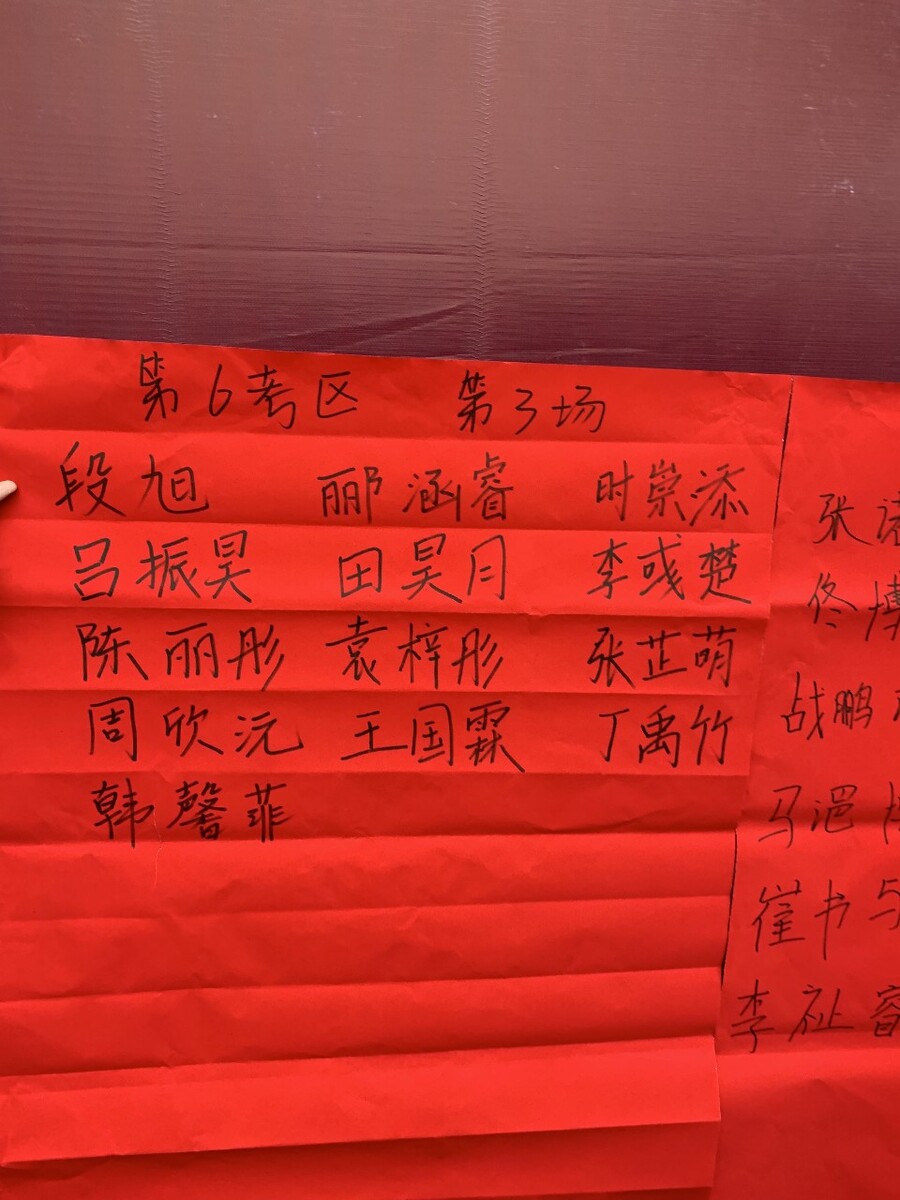 第6考区 第3场
段旭 郦涵睿 时崇添
吕振昊 田昊月 李彧楚
陈丽彤 袁梓彤 张芷萌
周欣沅 王国霖 丁禹竹
韩馨菲
张
佟博
战鹏
马浥
崔书
李祉睿